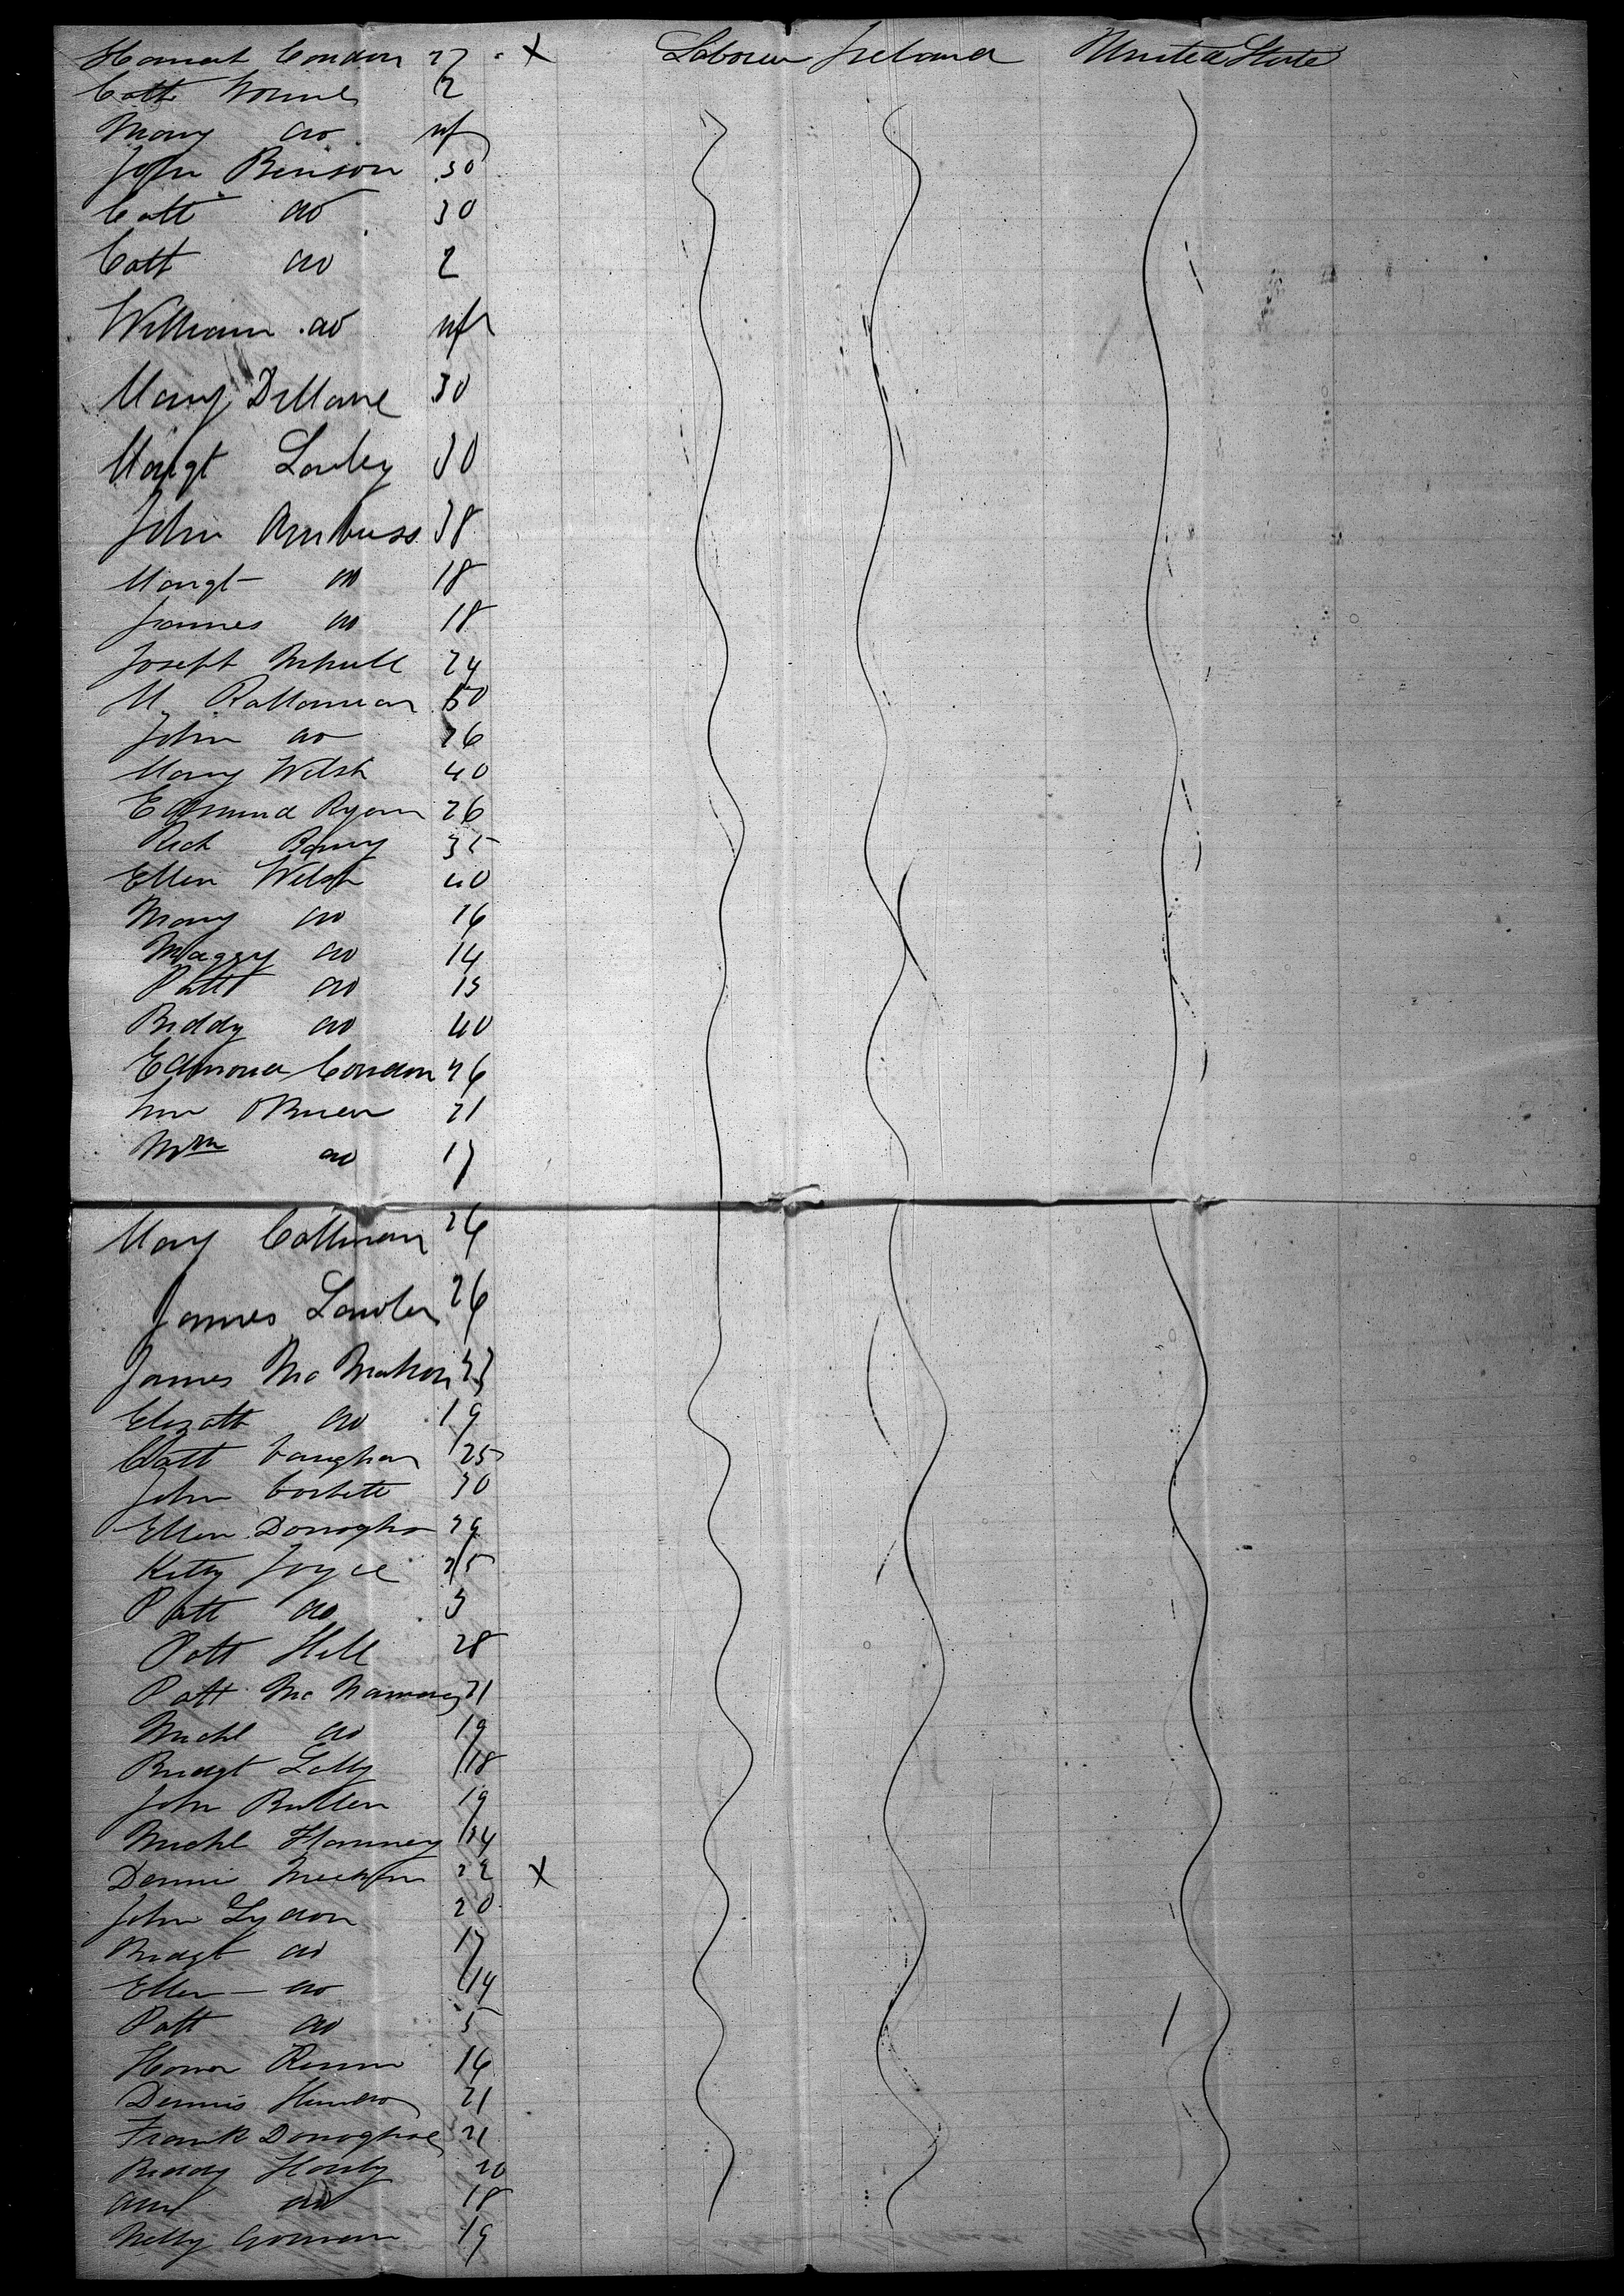 Hannah Condon 27 x Laborer Ireland United State
Cath 2
Mary do inf
John Benson 30
Cath do 30
Cath do 2
William do inf
Mary Dillane 30
Margt Lawley 30
John Ambuss 38
Margt do 18
James do 18
Joseph 24
M 50
John do 26
Mary Welsh 40
Edmund Ryan 26
Rich Barry 35
Ellen Welsh 40
Mary do 16
Maggy do 14
Patt do 15
Biddy do 40
Edmond Condon 26
OBrien 21
Wm do 17
Mary Callinan 26
James Lawler 26
James Mc Mahon 33
Elizath do 19
Cath Vaughan 25
John Corbett 30
Ellen Donogho 29
Kitty Joyce 25
Patt do 3
Patt Hill 28
Patt Mc Namara 21
Michl do 19
Bridgt Lally 18
John Butler 19
Michl Hanney 24
Dennis Meehan 22 x
John Lydon 20
Bridgt do 17
Ellen do 14
Patt do 5
Honor 16
Dennis 21
Frank Donoghoe 21
Biddy Hanly 20
Ann do 18
Nelly Gorman 19